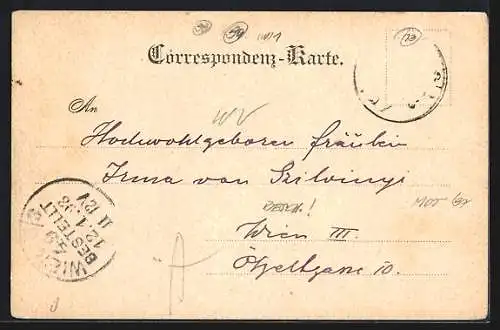 Correspondenz-Karte.
An
Hochwohlgeboren Fräulein
Irma von Szilvinyi
Wien III.
Ötzeltgasse 10.
WIEN
BESTELLT
12.1.98
11 12V